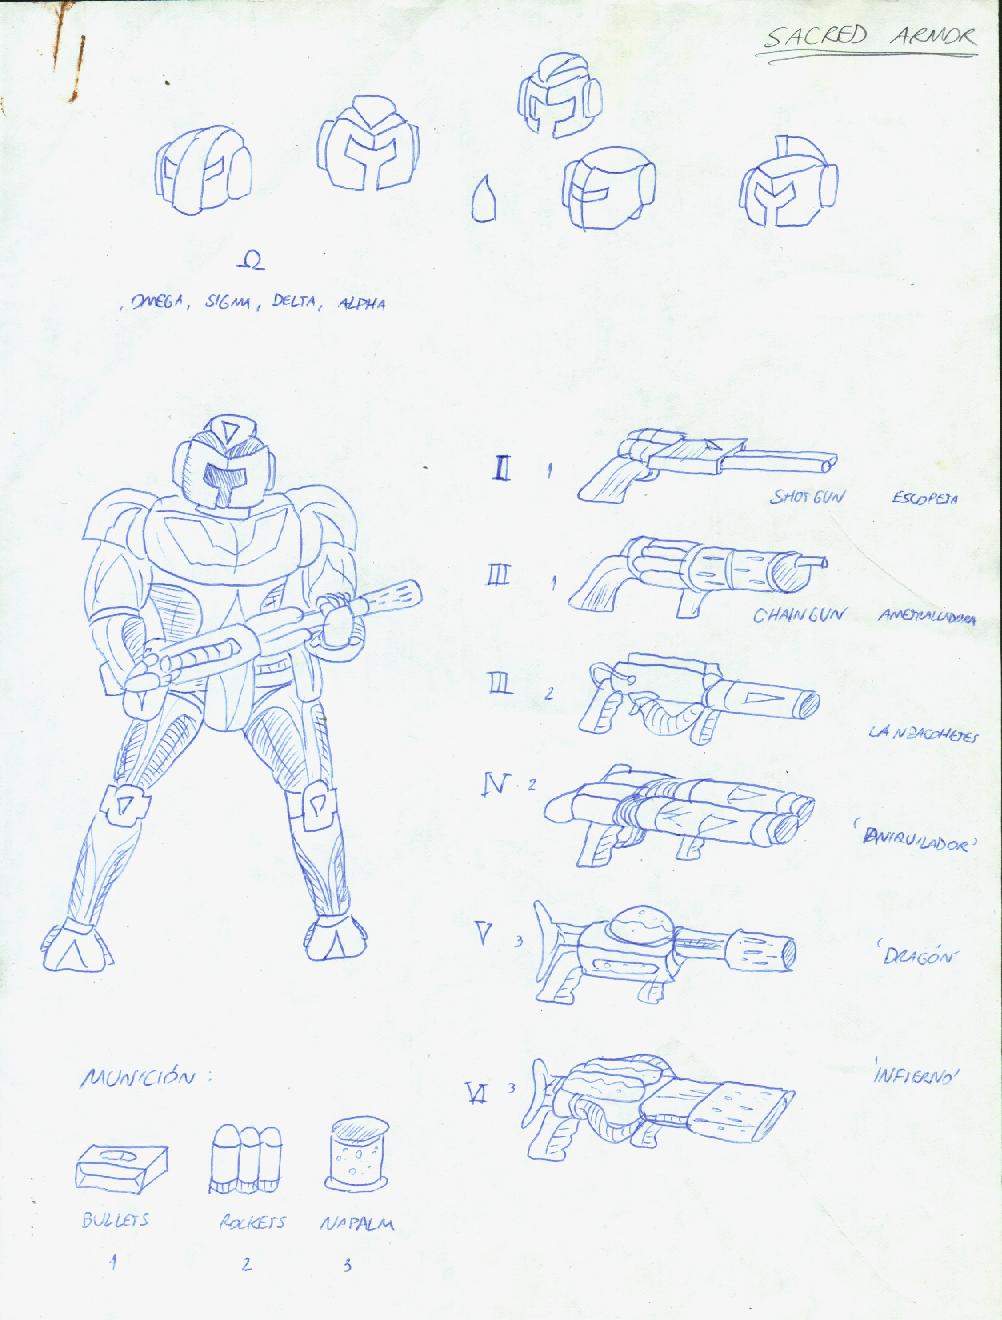 SACRED ARMOR
Ω
, OMEGA, SIGMA, DELTA, ALPHA
II 1
SHOTGUN ESCOPETA
III 1
CHAINGUN AMETRALLADORA
III 2
LANZACOHETES
IV 2
'ANIQUILADOR'
V 3
'DRAGÓN'
VI 3
'INFIERNO'
MUNICIÓN:
BULLETS ROCKETS NAPALM
1 2 3